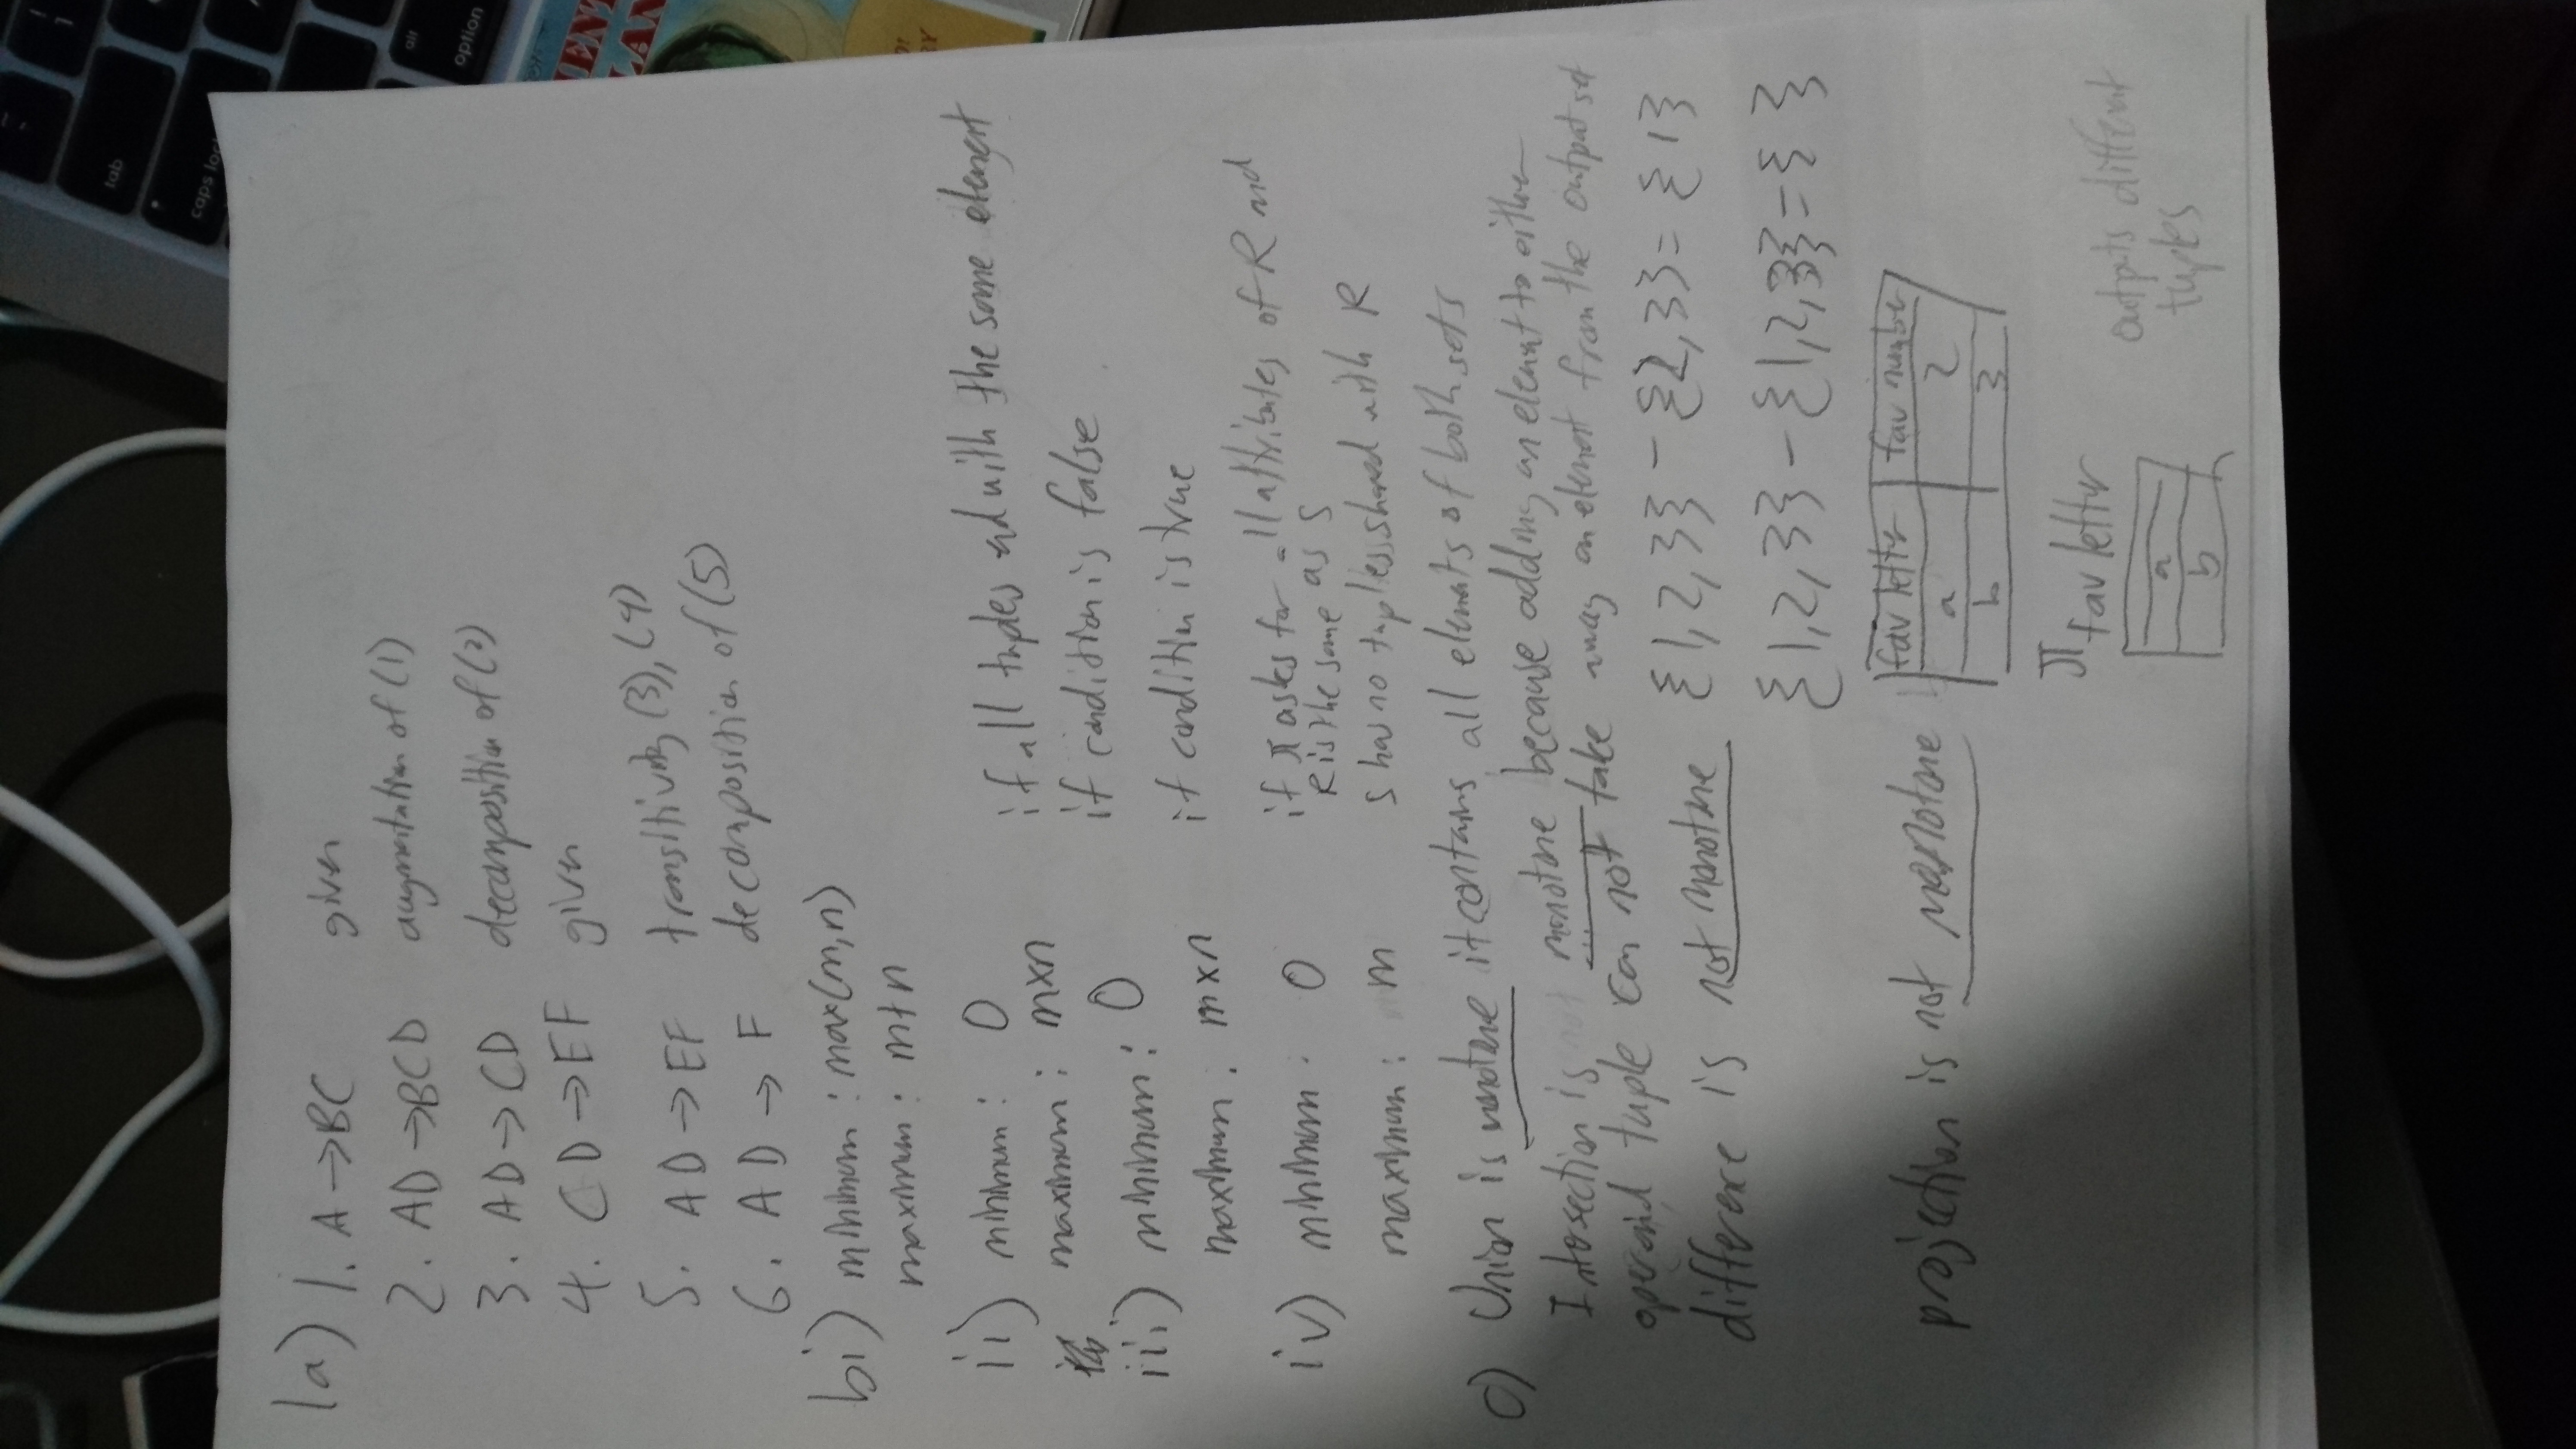 tab
caps loc
alt
option
1a) 1. A → BC given
2. AD → BCD augmentation of (1)
3. AD → CD decomposition of (2)
4. CD → EF given
5. AD → EF transitivity (3), (4)
6. AD → F decomposition of (5)
bi) minimum : max(m,n)
maximum : m+n
ii) minimum : 0
maximum : m×n if all tuples end with the same element
iii) minimum : 0 if condition is false
maximum : m×n if condition is true
iv) minimum : 0 if π asks for all attributes of R and
R is the same as S
maximum : m S has no tuples shared with R
c) Union is monotone it contains all elements of both sets
Intersection is monotone because adding an element to either
operand tuple can not take away an element from the output set
difference is not monotone {1,2,3} - {2,3} = {1}
{1,2,3} - {1,2,3} = { }
projection is not monotone
fav letter fav number
a 2
b 3
π fav letter
a
b
outputs different
tuples